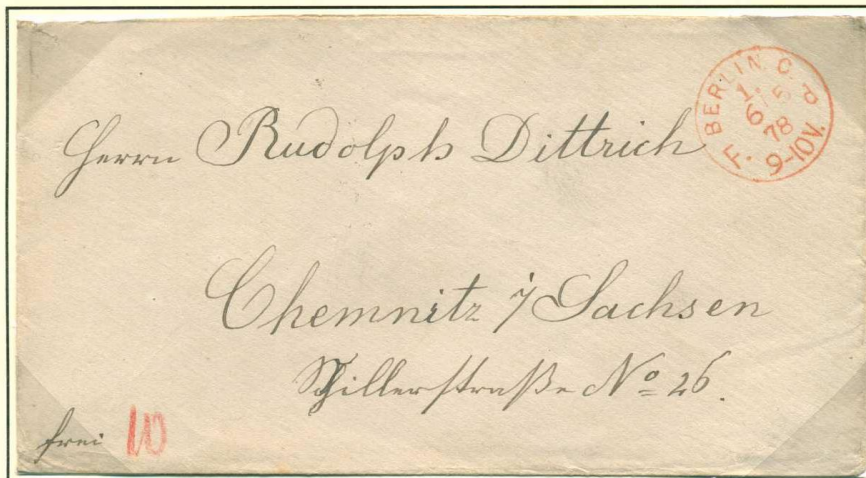 BERLIN. C. d
1.
6/5
78
F. 9-10V.
Herrn Rudolph Dittrich
Chemnitz i/ Sachsen
Schillerstraße No 26.
frei 10